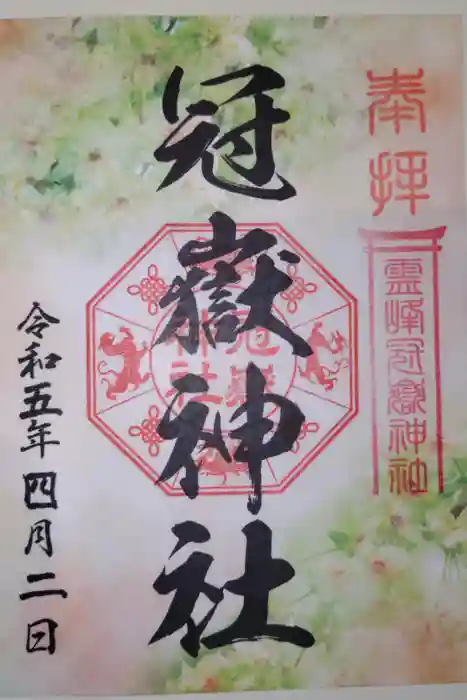 奉拝
霊峰冠嶽神社
冠嶽神社
冠嶽神社
令和五年四月二日